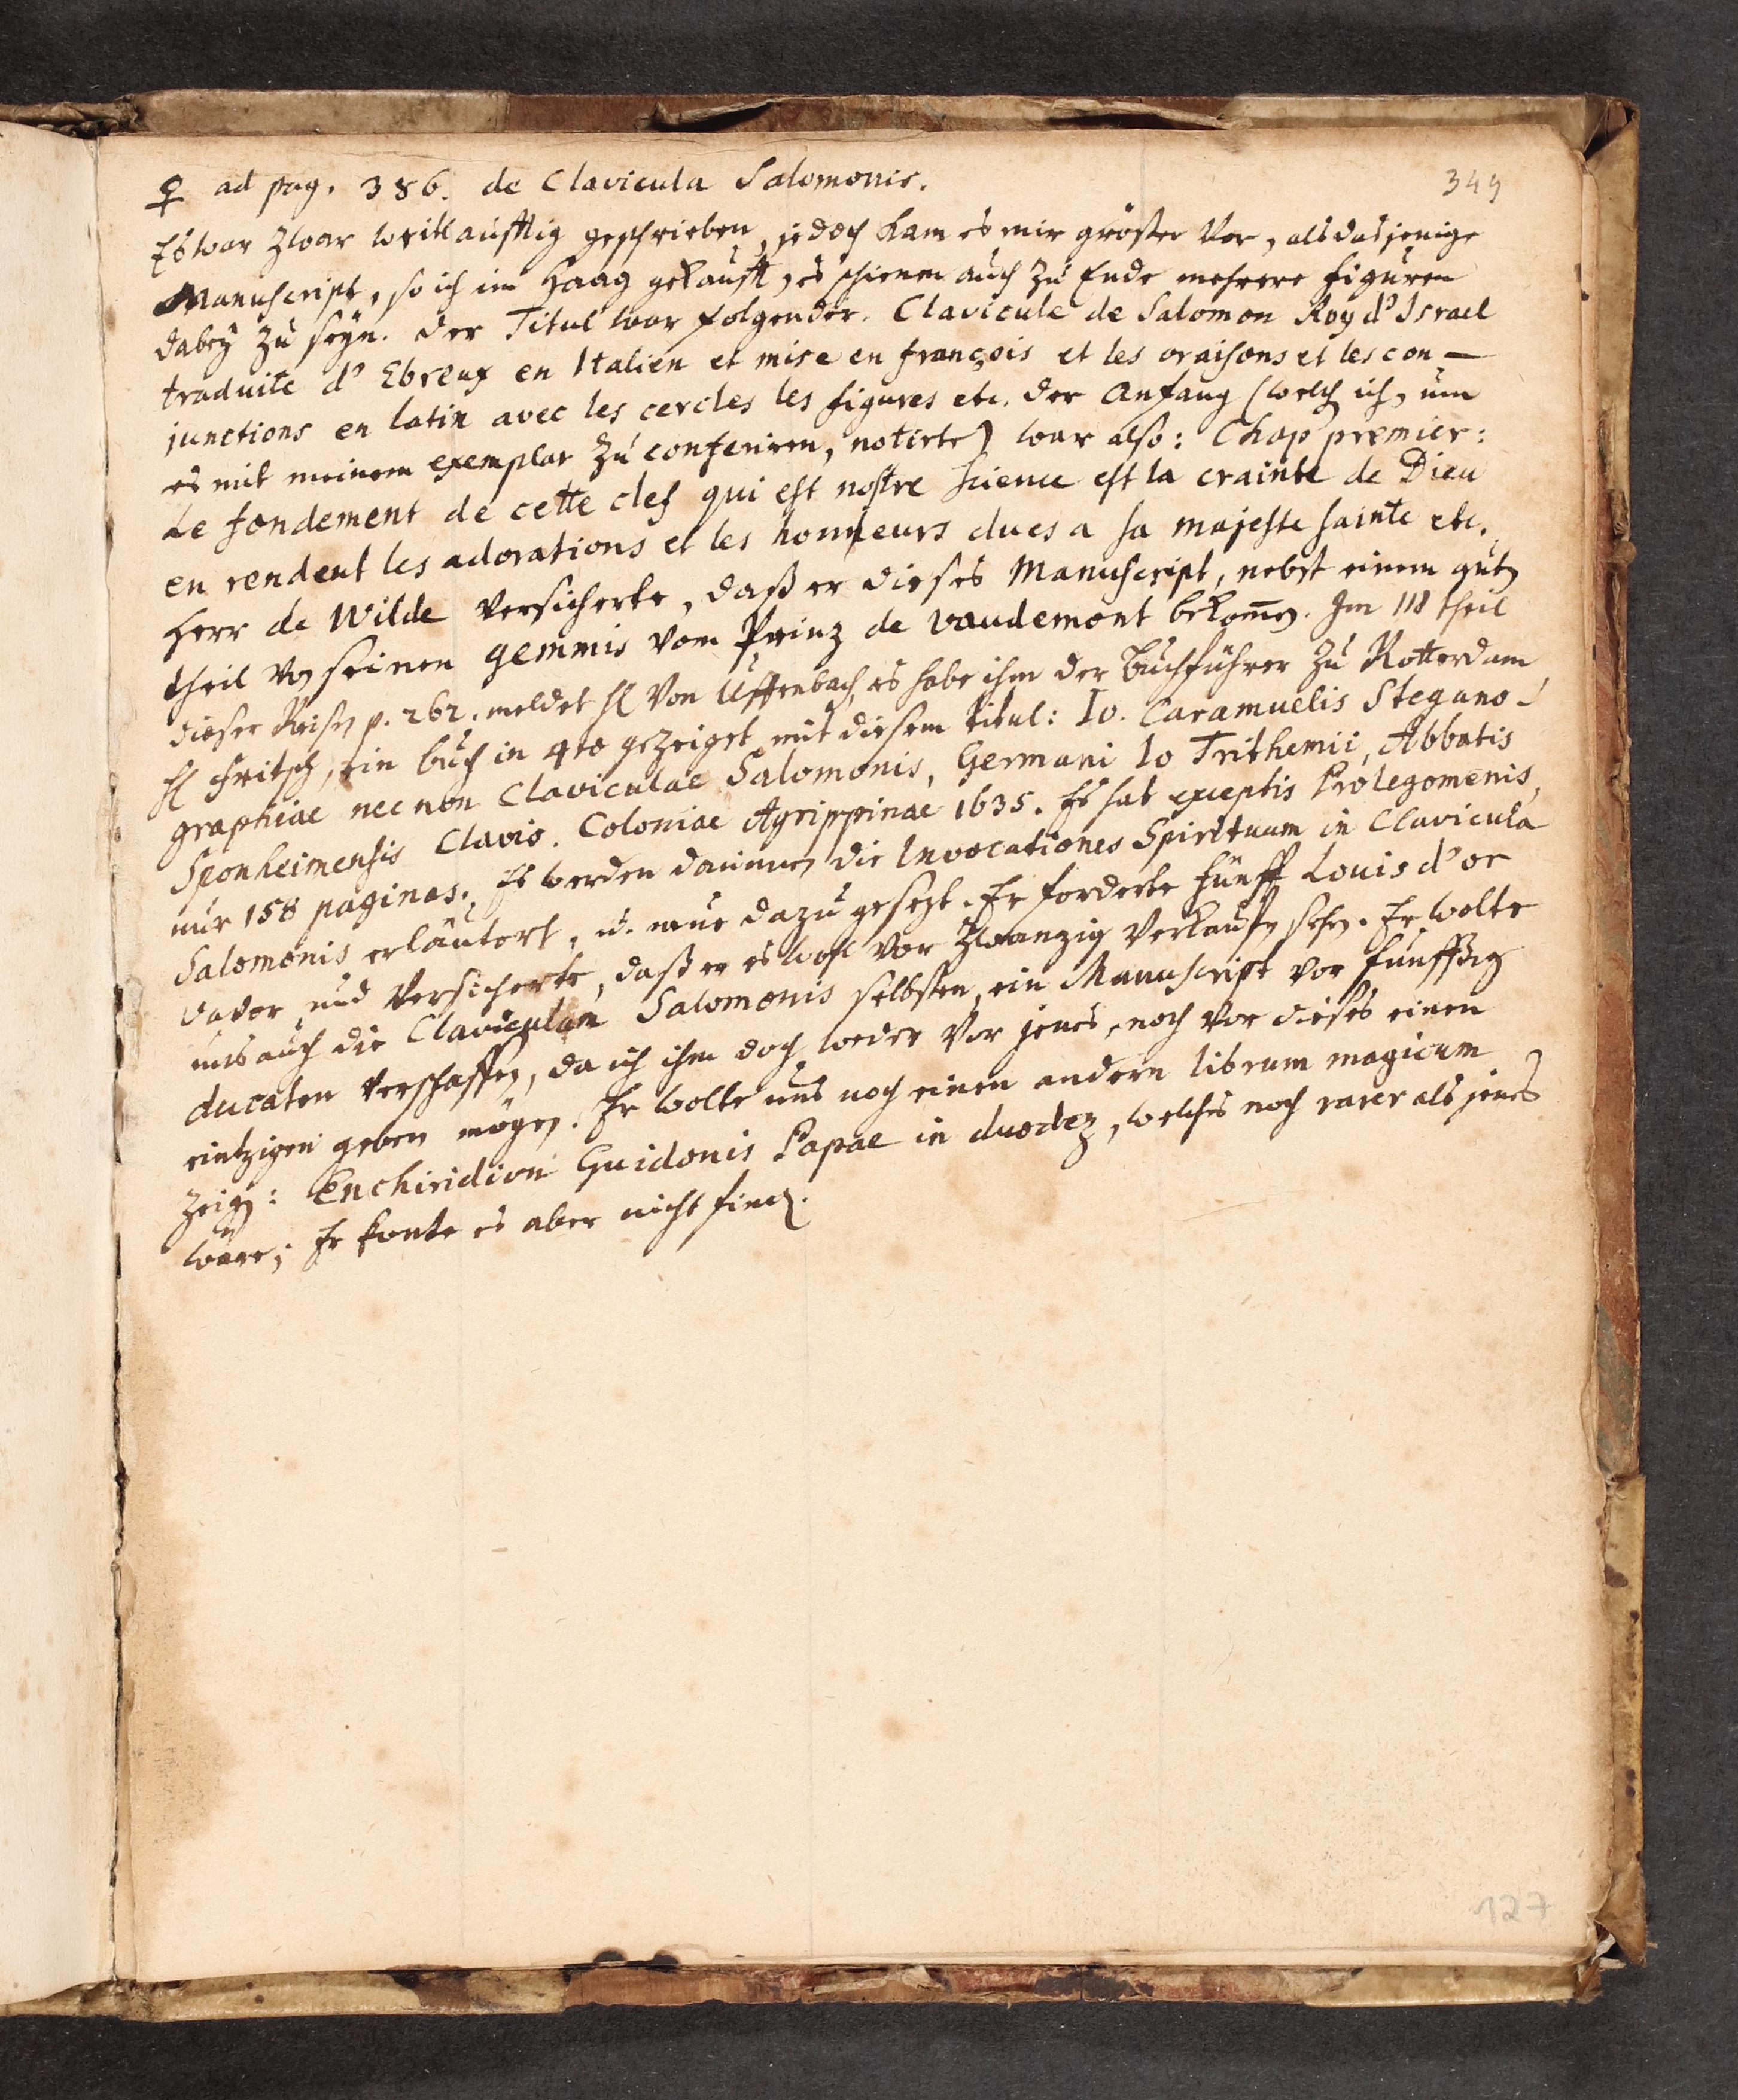 ♀ ad pag. 386. de Clavicula Salomonis.
349
Es war zwar weitläufftig geschrieben, jedoch kam es mir größer vor, als dasjenige
Manuscript, so ich im Haag gekaufft, es schienen auch zu Ende mehrere figuren
dabey zu seyn. Der Titul war folgender. Clavicule de Salomon Roy d'Israel
traduite d'Ebreux en Italien et mise en françois et les oraisons et les con-
junctions en latin avec les cercles les figures etc. der Anfang (welch ich, um
es mit meinem exemplar zu conferiren, notirte) war also: Chap premier:
Le fondement de cette clef qui est nostre science est la crainte de Dieu
en rendent les adorations et les honneurs dues a sa majeste sainte etc.
Herr de Wilde versicherte, daß er dieses Manuscript, nebst einem guten
theil von seinen gemmis vom Prinz de Vaudemont bekommen. Im III theil
dieser Reisen p. 262. meldet H von Uffenbach, es habe ihm der Buchführer zu Rotterdam
H Fritsch, ein buch in 4to gezeiget mit diesem titul: Io. Caramuelis Stegano-
graphiae nec non Claviculae Salomonis, Germani Io Trithemii, Abbatis
Sponheimensis Clavis. Coloniae Agrippinae 1635. Es hat exceptis Prolegomenis,
nur 158 paginas. Es werden darinnen die Invocationes Spirituum in Clavicula
Salomonis erläutert, u. neue dazu gesezt. Er forderte fünff Louis d'or
davor und versicherte, daß er es wohl vor zwanzig verkaufen sehen. Er wolte
uns auch die Claviculam Salomonis selbsten, ein Manuscript vor funffzig
ducaten verschaffen, da ich ihm doch weder vor jenes, noch vor dieses einen
eintzigen geben mögen. Er wolte uns noch einen andern librum magicum
zeigen: Enchiridion Guidonis Papae in duodez, welches noch rarer als jenes
wäre; Er konte es aber nicht finden.
127